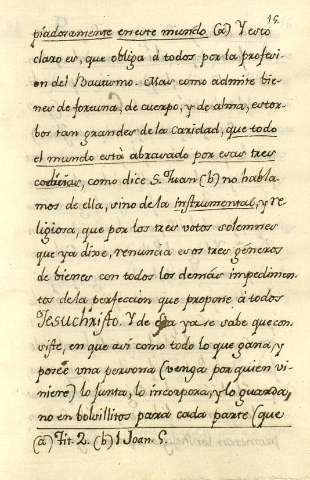 15.
piadoramente en este mundo (a) Y esto
claro es, que obliga à todos por la profesi-
on del Bautismo. Mas como admite bie-
nes de fortuna, de cuerpo, y de alma, estor-
bos tan grandes de la caridad, que todo
el mundo està abrasado por esas tres
codicias, como dice S. Juan (b) no habla-
mos de ella, sino de la instrumental, y re-
ligiosa, que por los tres votos solemnes
que ya dixe, renuncia esos tres géneros
de bienes con todos los demás impedimen-
tos de la perfeccion que propone à todos
Jesuchristo. Y de esta ya se sabe que con-
siste, en que asi como todo lo que gana, y
poseé una persona (venga por quien vi-
niere) lo junta, lo incorpora, y lo guarda,
no en bolsillitos para cada parte (que
(a) Tit. 2. (b) 1 Joan. 5.